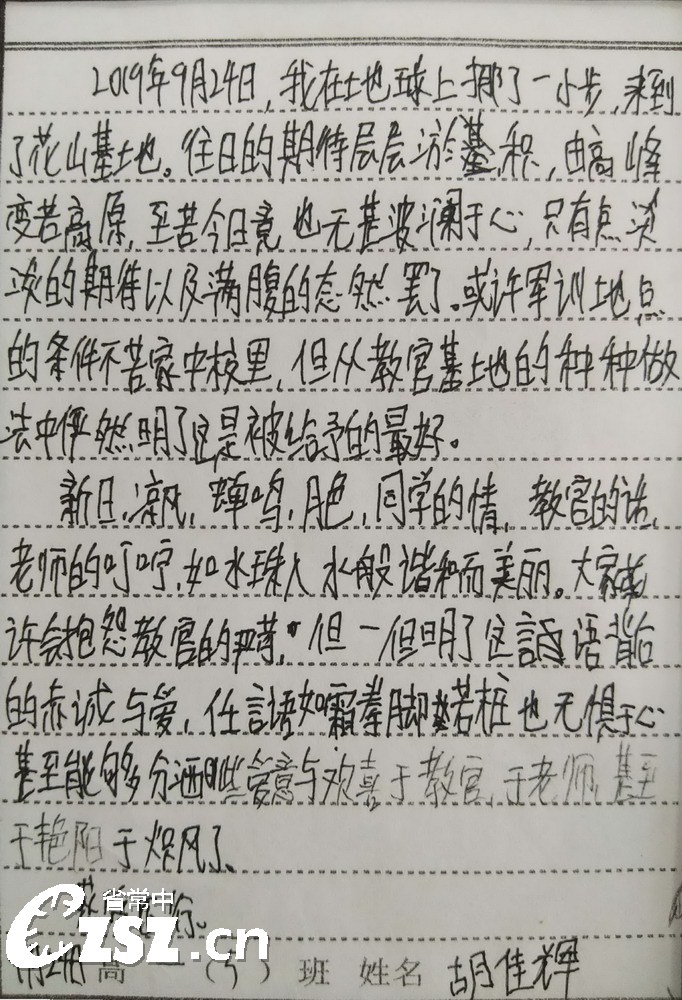 2019年9月24日,我在土地球上挪了一小步,来到
了花山基土地。往日的期待层层淤积,由高峰
变若高原,至若今日竟也无甚波澜于心,只有点淡
淡的期待以及满腹的怎然罢了。或许军训土地点
的条件不若家中校里,但从教官基土地的种种做
法中俨然明了这是被给予的最好。
新日,凉风,蝉鸣,月色,同学的情,教官的话,
老师的叮咛,如水珠入水般谐和而美丽。大家或
许会抱怨教官的严苛,但一但明了这諴语背后
的赤诚与爱,任言语如霜拳脚若桩也无惧于心
甚至能够分洒些爱意与欢喜于教官,于老师,甚至
于艳阳于炽风了。
省常中
czsz.cn
高一(5)班 姓名 胡佳辉